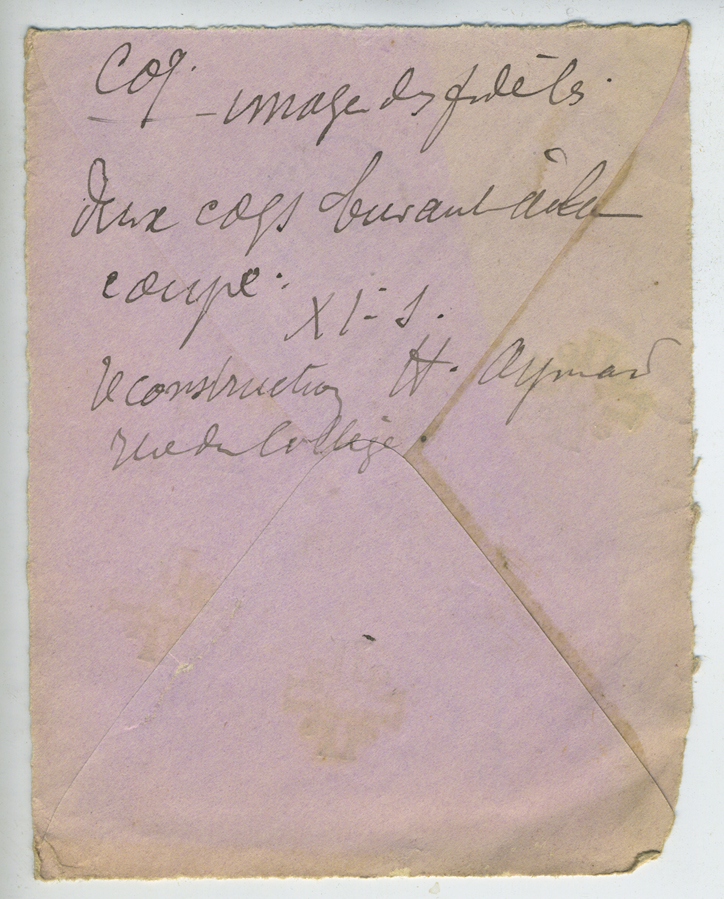 Coq. – image des fidèles.
Deux coqs buvant à la
coupe. XIe s.
Reconstruction H. Aymard
rue du Collège.